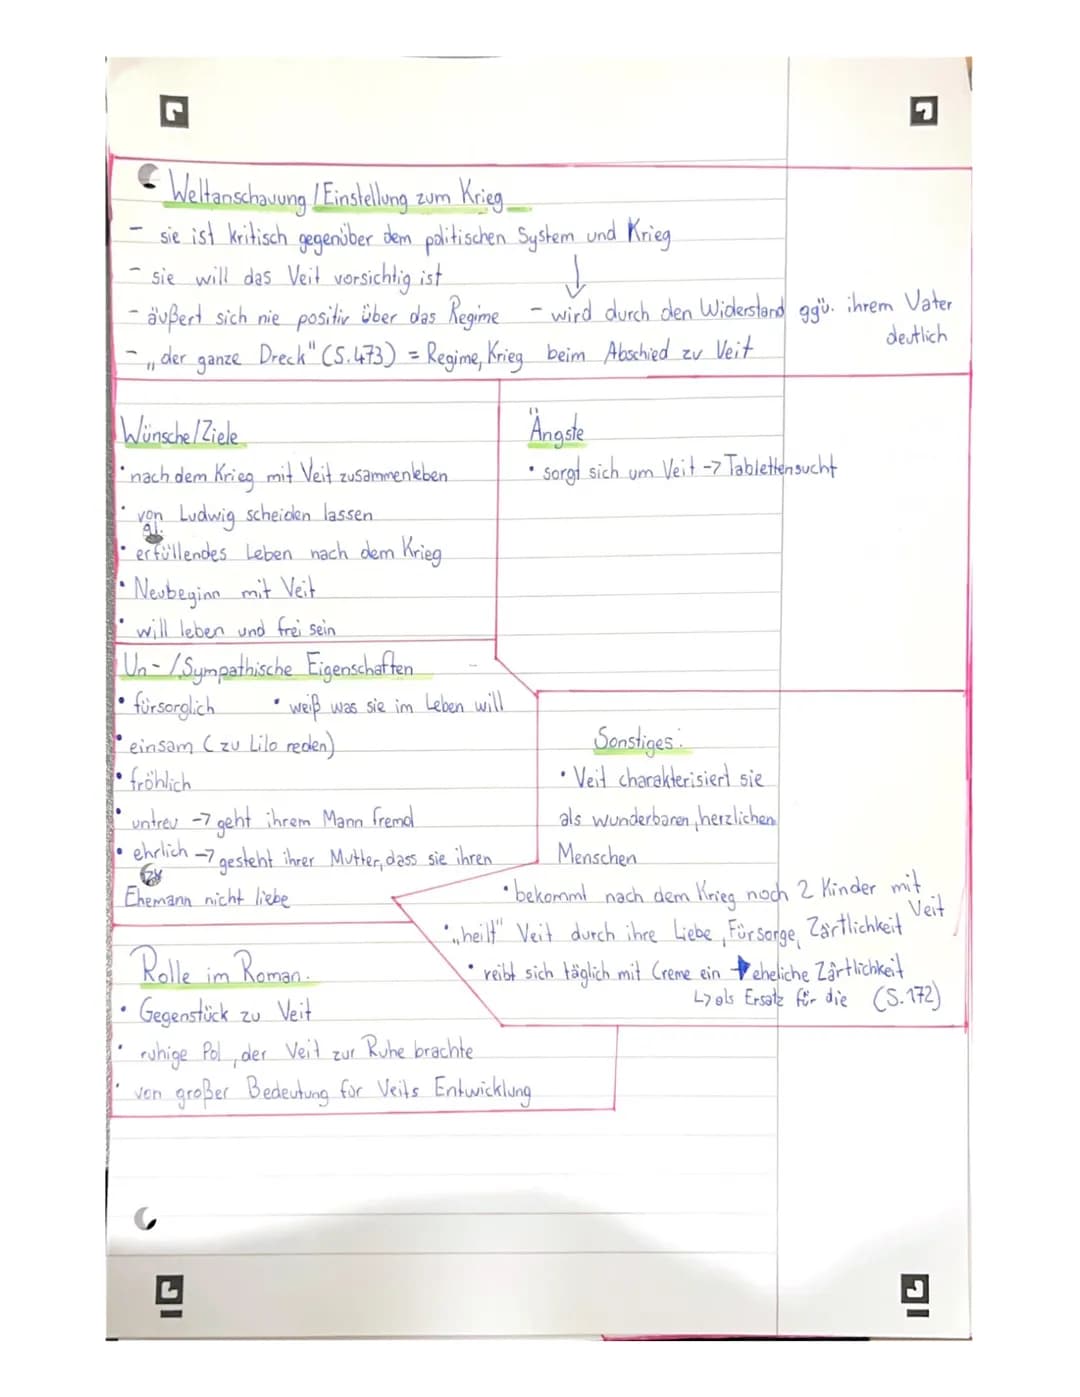 Weltanschauung / Einstellung zum Krieg
- sie ist kritisch gegenüber dem politischen System und Krieg
- sie will das Veit vorsichtig ist
- äußert sich nie positiv über das Regime - wird durch den Widerstand ggü. ihrem Vater
deutlich
- „der ganze Dreck" (S.473) = Regime, Krieg beim Abschied zu Veit
Wünsche/Ziele
• nach dem Krieg mit Veit zusammenleben
• von Ludwig scheiden lassen
• erfüllendes Leben nach dem Krieg
• Neubeginn mit Veit
• will leben und frei sein
Ängste
• sorgt sich um Veit -> Tablettensucht
Un- / Sympathische Eigenschaften
• fürsorglich • weiß was sie im Leben will
• einsam (zu Lilo reden)
• fröhlich
• untreu -> geht ihrem Mann fremd
• ehrlich -> gesteht ihrer Mutter, dass sie ihren
Ehemann nicht liebe
Sonstiges:
• Veit charakterisiert sie
als wunderbaren, herzlichen
Menschen
• bekommt nach dem Krieg noch 2 Kinder mit
Veit
• „heilt" Veit durch ihre Liebe, Fürsorge, Zärtlichkeit
• reibt sich täglich mit Creme ein eheliche Zärtlichkeit
↳ als Ersatz für die (S.172)
Rolle im Roman.
• Gegenstück zu Veit
• ruhige Pol, der Veit zur Ruhe brachte
• von großer Bedeutung für Veits Entwicklung